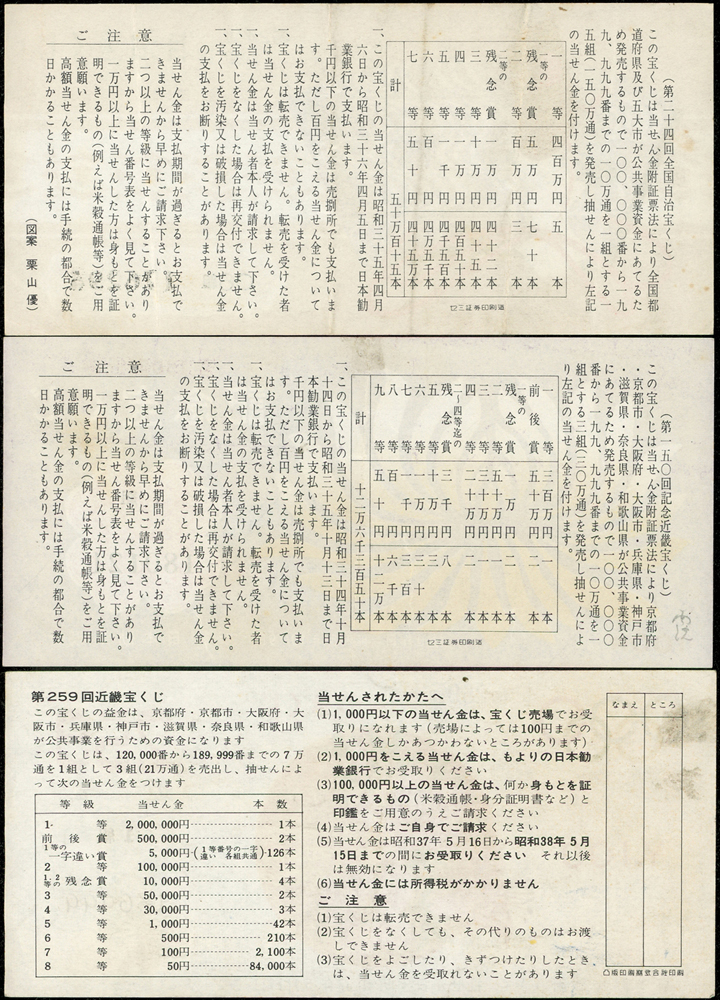 (第二十四回全国自治宝くじ)
この宝くじは当せん金附証票法により全国都
道府県及び五大市が公共事業資金にあてるた
め発売するもので一〇〇、〇〇〇番から一九
九、九九九番までの一〇万通を一組とする一
五組(一五〇万通)を発売し抽せんにより左記
の当せん金を付けます。
一等 四百万円 五本
一等の残念賞 五万円 七十本
二等 百万円 三本
二等の残念賞 一万円 四十二本
三等 十万円 四十五本
四等 一万円 四百五十本
五等 一千円 四千五百本
六等 百円 四万五千本
七等 五十円 四十五万本
計 五十万百十五本
セ三証券印刷
一、この宝くじの当せん金は昭和三十五年四月
六日から昭和三十六年四月五日まで日本勧
業銀行で支払います。
千円以下の当せん金は売捌所でも支払いま
す。ただし百円をこえる当せん金について
はお支払できないこともあります。
一、宝くじは転売できません。転売を受けた者
は当せん金の支払を受けられません。
一、当せん金は当せん者本人が請求して下さい。
一、宝くじをなくした場合は再交付できません。
一、宝くじを汚染又は破損した場合は当せん金
の支払をお断りすることがあります。
ご注意
当せん金は支払期間が過ぎるとお支払で
きませんから早めにご請求下さい。
二つ以上の等級に当せんすることがあり
ますから当せん番号表をよく見て下さい。
一万円以上に当せんした方は身もとを証
明できるもの(例えば米穀通帳等)をご用
意願います。
高額当せん金の支払には手続の都合で数
日かかることもあります。
(図案 栗山優)
(第一五〇回記念近畿宝くじ)
この宝くじは当せん金附証票法により京都府
・京都市・大阪府・大阪市・兵庫県・神戸市
・滋賀県・奈良県・和歌山県が公共事業資金
にあてるため発売するもので一〇〇、〇〇〇
番から一九九、九九九番までの一〇万通を一
組とする三組(三〇万通)を発売し抽せんによ
り左記の当せん金を付けます。
一等 三百万円 一本
前後賞 五十万円 二本
一等の残念賞 一万円 二本
二等 一本
三等 一本
四等 二本
二〜四等迄の残念賞 三千円 八本
五等 三本
六等 三十本
七等 三百本
八等 百円 六千本
九等 五十円 十二万本
計 十二万六千三百五十本
セ三証券印刷
一、この宝くじの当せん金は昭和三十四年十月
十四日から昭和三十五年十月十三日まで日
本勧業銀行で支払います。
千円以下の当せん金は売捌所でも支払いま
す。ただし百円をこえる当せん金について
はお支払できないこともあります。
一、宝くじは転売できません。転売を受けた者
は当せん金の支払を受けられません。
一、当せん金は当せん者本人が請求して下さい。
一、宝くじをなくした場合は再交付できません。
一、宝くじを汚染又は破損した場合は当せん金
の支払をお断りすることがあります。
ご注意
当せん金は支払期間が過ぎるとお支払で
きませんから早めにご請求下さい。
二つ以上の等級に当せんすることがあり
ますから当せん番号表をよく見て下さい。
一万円以上に当せんした方は身もとを証
明できるもの(例えば米穀通帳等)をご用
意願います。
高額当せん金の支払には手続の都合で数
日かかることもあります。
第259回近畿宝くじ
この宝くじの益金は、京都府・京都市・大阪府・大
阪市・兵庫県・神戸市・滋賀県・奈良県・和歌山県
が公共事業を行うための資金になります
この宝くじは、120,000番から189,999番までの7万
通を1組として3組(21万通)を売出し、抽せんによ
って次の当せん金をつけます
等級 当せん金 本数
1等 2,000,000円 1本
前後賞 500,000円 2本
1等の一字違い賞 5,000円(1等番号の一字違い 各組共通)126本
2等 100,000円 1本
1.2等の残念賞 10,000円 4本
3等 50,000円 2本
4等 30,000円 3本
5等 1,000円 42本
6等 500円 210本
7等 100円 2,100本
8等 50円 84,000本
当せんされたかたへ
(1)1,000円以下の当せん金は、宝くじ売場でお受
取りになれます(売場によっては100円までの
当せん金しかあつかわないところがあります)
(2)1,000円をこえる当せん金は、もよりの日本勧
業銀行でお受取りください
(3)100,000円以上の当せん金は、何か身もとを証
明できるもの(米穀通帳・身分証明書など)と
印鑑をご用意のうえご請求ください
(4)当せん金はご自身でご請求ください
(5)当せん金は昭和37年5月16日から昭和38年5月
15日までの間にお受取りください それ以後
は無効になります
(6)当せん金には所得税がかかりません
ご注意
(1)宝くじは転売できません
(2)宝くじをなくしても、その代りのものはお渡
しできません
(3)宝くじをよごしたり、きずつけたりしたとき
は、当せん金を受取れないことがあります
なまえ ところ
凸版印刷株式会社印刷